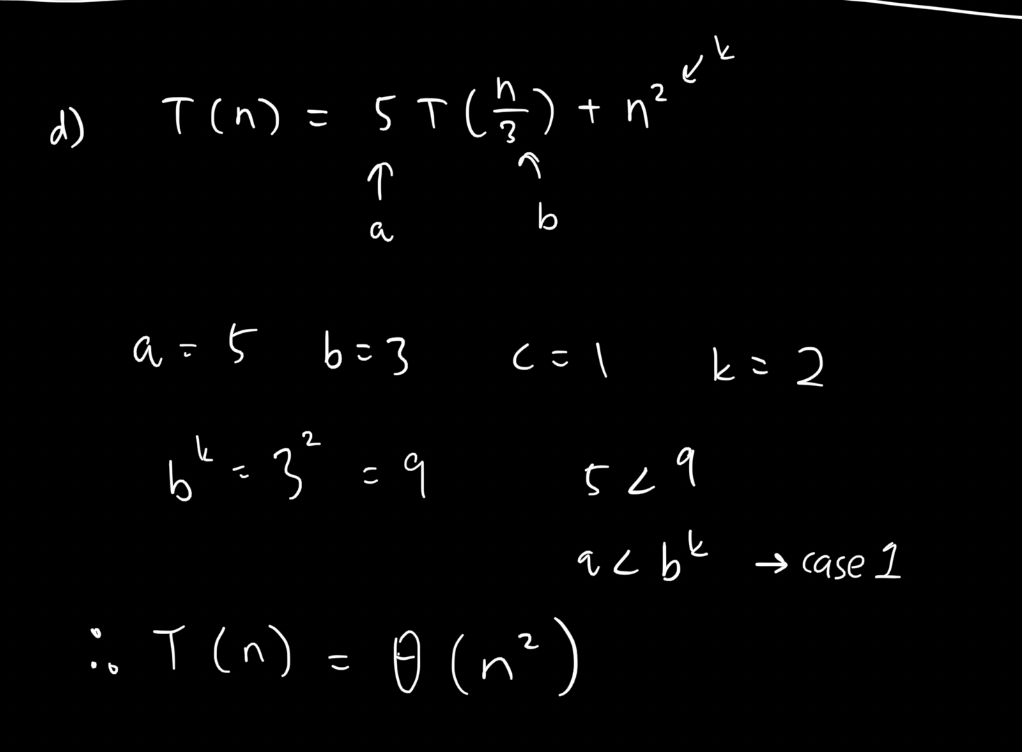 d) T(n) = 5T(n/3) + n² ↙ k
↑ a ↖ b
a = 5 b = 3 c = 1 k = 2
bᵏ = 3² = 9 5 < 9
a < bᵏ → case 1
∴ T(n) = θ(n²)